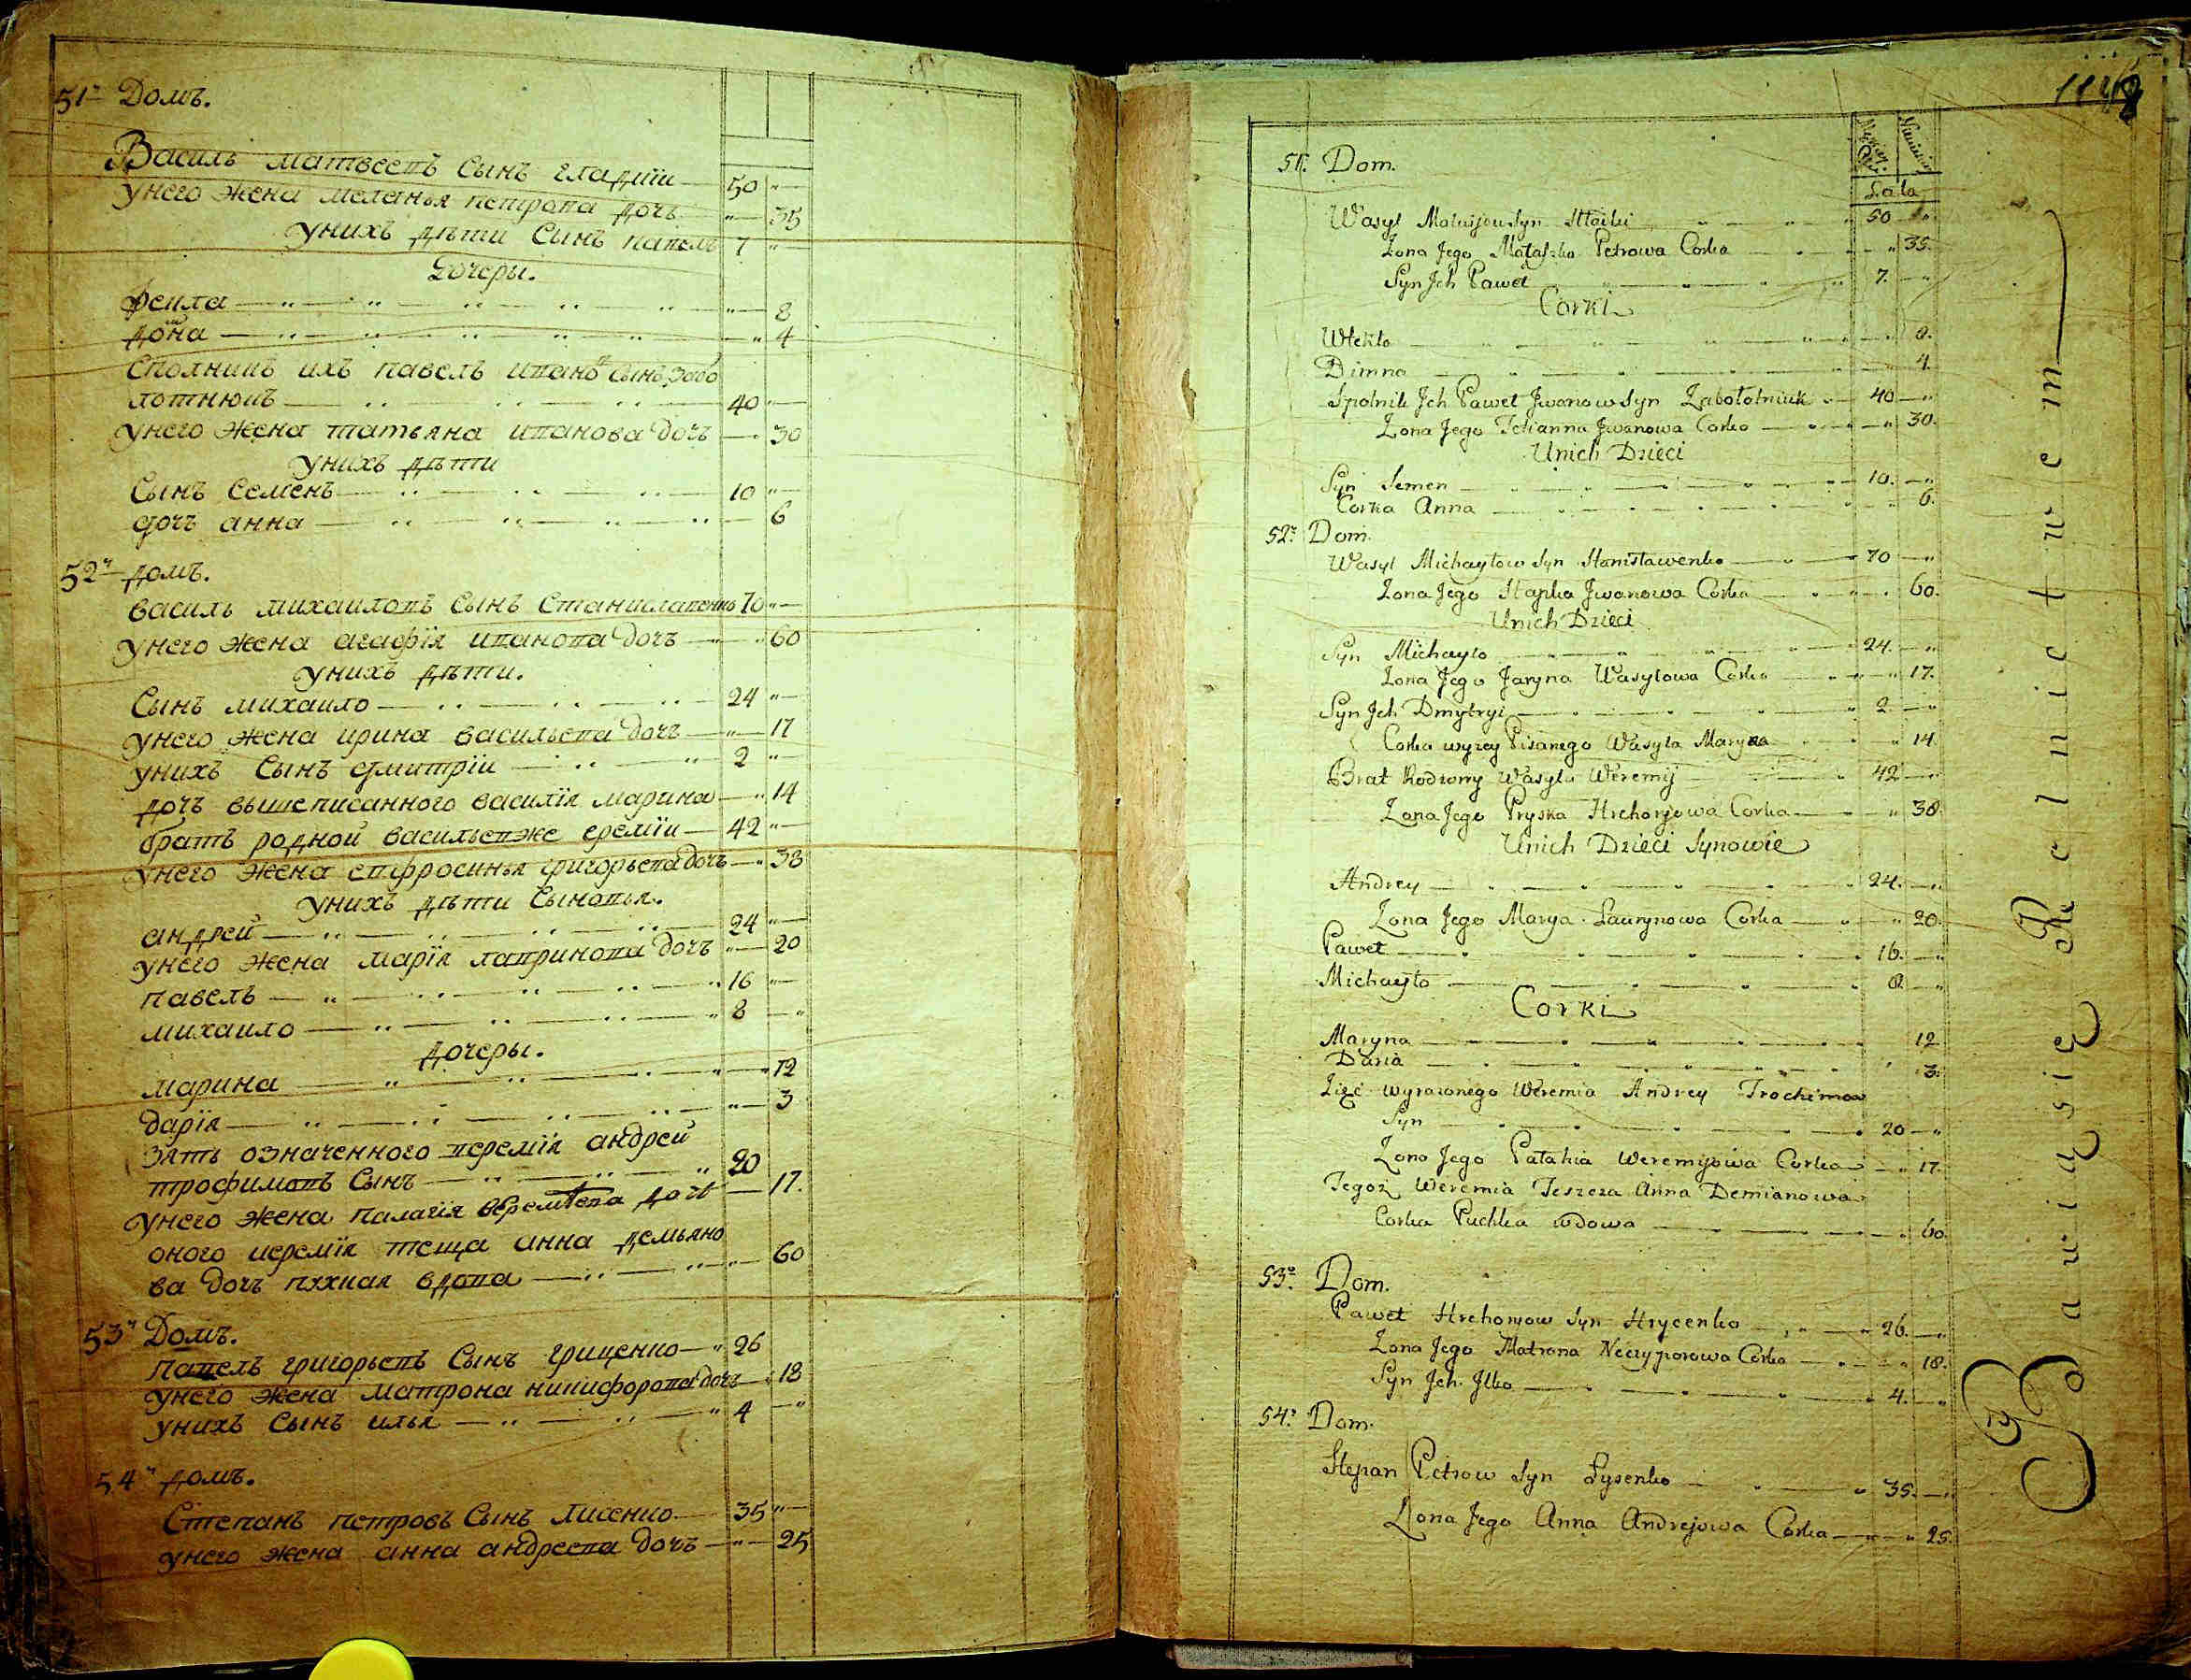 51º Домъ.
Василь матвеевъ Сынъ гладкiи — 50 "
унего жена меланья петрова дочь " 35
унихъ дѣти Сынъ павелъ 7 "
дочеры.
фекла " 8
домна " 4
Сполникъ ихъ павелъ ивановъ Сынъ Забо
лотнюкъ 40 "
унего жена татьяна иванова дочь 30
унихъ дѣти
Сынъ Семенъ 10 "
дочъ анна 6
52й домъ.
василь михаиловъ Сынъ Станиславенко 70 "
унего жена агафiя иванова дочъ " 60
унихъ дѣти.
Сынъ михаило 24 "
унего жена ирина васильева дочъ " 17
унихъ Сынъ дмитрiи 2 "
дочъ вышеписанного василiя марина " 14
братъ родной васильевже еремiи 42 "
унего жена евфросинья григорьева дочъ " 38
унихъ дѣти Сыновья.
андрей 24 "
унего жена марiя лавринова дочъ " 20
павелъ 16 "
михаило 8 "
дочеры.
марина " 12
дарiя " 3
зять означенного веремiя андрей
трофимовъ Сынъ 20
унего жена палагiя веремѣева дочъ 17.
оного иеремiя теща анна демьяно
ва дочъ вдова " 60
53й Домъ.
павелъ григорьевъ Сынъ гриценко 26
унего жена матрона никифорова дочъ 18
унихъ Сынъ илья 4 "
54й домъ.
Степанъ петровъ Сынъ лисенко 35 "
унего жена анна андреева дочъ " 25
Lata
51. Dom.
Wasyl Matwijow Syn 50 "
Zona Jego Małaszka Petrowa Corka " 35.
Syn Jch Paweł 7. "
Corki
Wekła " 8.
Dimna " 4.
Spolnik Jch Paweł Jwanow Syn Zabołotniuk 40 "
Zona Jego Tetianna Jwanowa Corka " 30.
Unich Dzieci
Syn Semen 10. "
Corka Anna 6.
52º Dom.
Wasyl Michayłow Syn Stanisławenko 70 "
Zona Jego Hapka Jwanowa Corka 60.
Unich Dzieci
Syn Michayło 24. "
Zona Jego Jaryna Wasylowa Corka " 17.
Syn Jch Dmytryi 2 "
Corka wyzey Pisanego Wasyla Maryna " 14.
Brat Rodzony Wasyla Weremij 42 "
Zona Jego Pryska Hrehorjowa Corka " 38.
Unich Dzieci Synowie
Andrey 24. "
Zona Jego Marya Laurynowa Corka " 20.
Paweł 16. "
Michayło 8. "
Corki
Maryna 12
Daria " 3.
Zięć wyrazonego Weremia Andrey Trochimow
Syn 20 "
Zona Jego Pałahia Weremijowa Corka " 17.
Tegoż Weremia Teszcza Anna Demianowa
Corka Puchka wdowa " 60.
53º Dom.
Paweł Hrehorjow Syn Hrycenko 26. "
Zona Jego Matrona Neczyporowa Corka " 18.
Syn Jch Jlko 4. "
54º Dom.
Stepan Petrow Syn Łysenko 35. "
Zona Jego Anna Andrejowa Corka " 25.